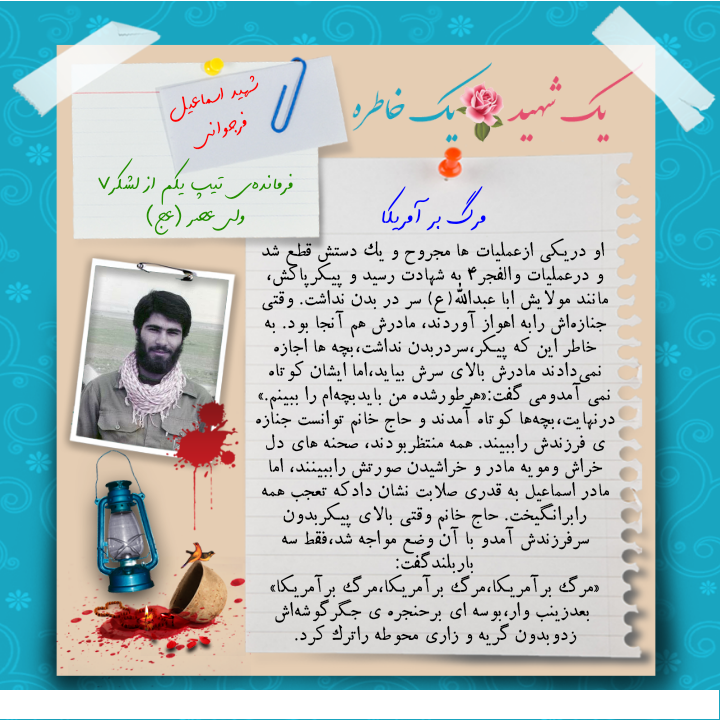 یک شهید یک خاطره
شهید اسماعیل
فرجوانی
فرمانده‌ی تیپ یکم از لشکر۷
ولی عصر (عج)
مرگ بر آمریکا
او دریکی ازعملیات ها مجروح و یك دستش قطع شد
و درعملیات والفجر۴ به شهادت رسید و پیکرپاکش،
مانند مولایش ابا عبدالله(ع) سر در بدن نداشت. وقتی
جنازه‌اش رابه اهواز آوردند، مادرش هم آنجا بود. به
خاطر این که پیکر،سردربدن نداشت،بچه ها اجازه
نمی‌دادند مادرش بالای سرش بیاید،اما ایشان کوتاه
نمی آمدومی گفت:«هرطورشده من بایدبچه‌ام را ببینم.»
درنهایت،بچه‌ها کوتاه آمدند و حاج خانم توانست جنازه
ی فرزندش راببیند. همه منتظربودند، صحنه های دل
خراش ومویه مادر و خراشیدن صورتش راببینند، اما
مادر اسماعیل به قدری صلابت نشان دادکه تعجب همه
رابرانگیخت. حاج خانم وقتی بالای پیکربدون
سرفرزندش آمدو با آن وضع مواجه شد،فقط سه
باربلندگفت:
«مرگ برآمریکا،مرگ برآمریکا،مرگ برآمریکا»
بعدزینب وار،بوسه ای برحنجره ی جگرگوشه‌اش
زدوبدون گریه و زاری محوطه راترك کرد.